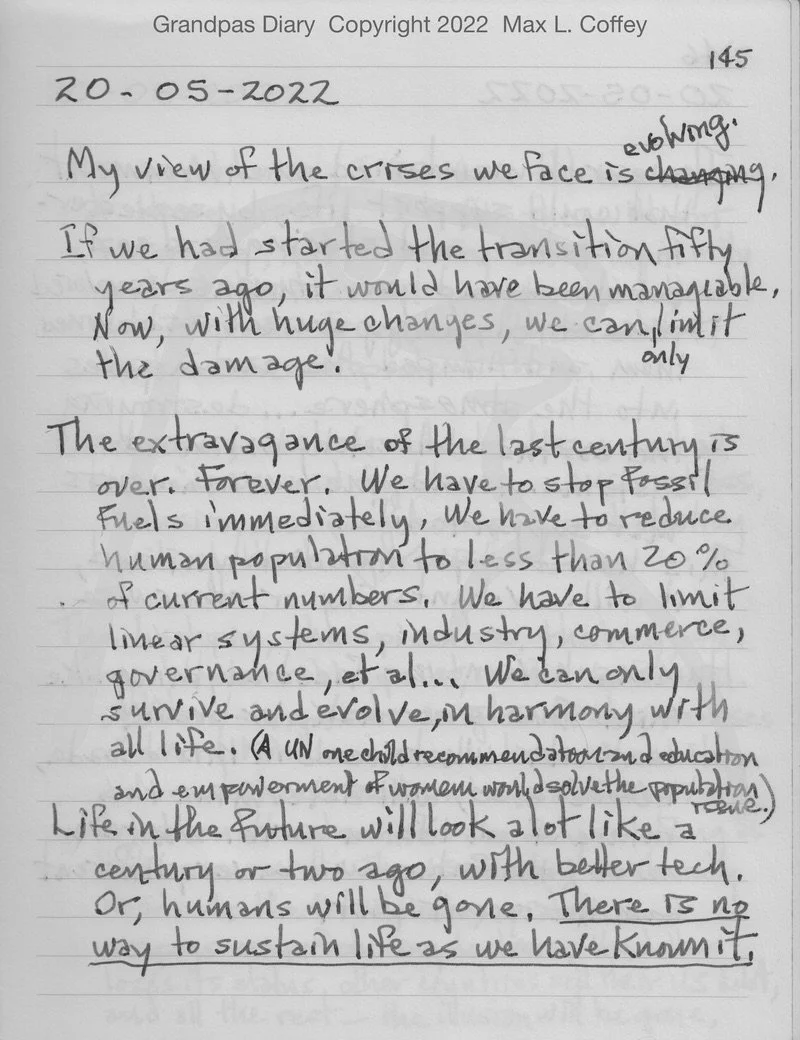 Grandpas Diary Copyright 2022 Max L. Coffey
145
20-05-2022
evolving.
My view of the crises we face is changing.
If we had started the transition fifty
years ago, it would have been manageable.
Now, with huge changes, we can limit
only
the damage.
The extravagance of the last century is
over. Forever. We have to stop Fossil
Fuels immediately, We have to reduce
human population to less than 20%
of current numbers. We have to limit
linear systems, industry, commerce,
governance, et al... We can only
survive and evolve, in harmony with
all life. (A UN one child recommendatoon and education
and empowerment of women would solve the population
issue.)
Life in the future will look a lot like a
century or two ago, with better tech.
Or, humans will be gone. There is no
way to sustain life as we have known it.